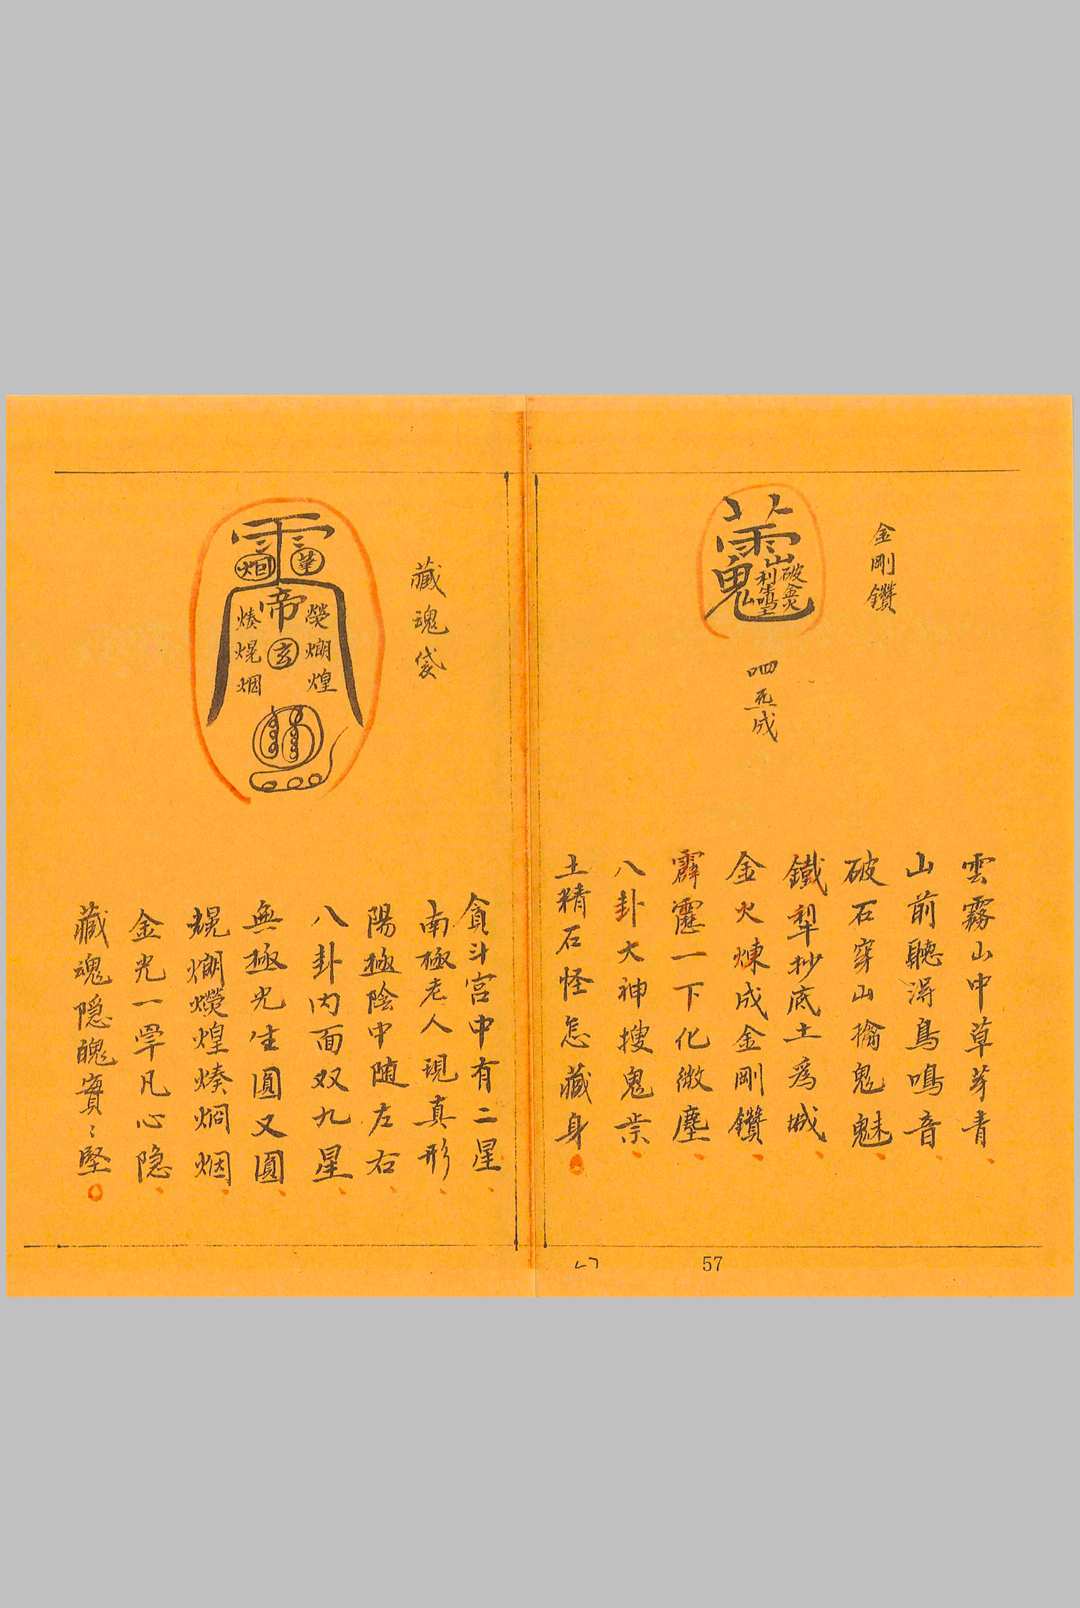 金剛鑽
破金火
山利生
鬼
四 成
雲霧山中草芽青、
山前聽得鳥鳴音、
破石穿山擒鬼魅、
鐵犁抄底土為城、
金火煉成金剛鑽、
霹靂一下化微塵、
八卦大神搜鬼祟、
土精石怪怎藏身。
57
藏魂袋
帝
玄
熒烱煌
煙
貪斗宮中有二星、
南極老人現真形、
陽極陰中随左右、
八卦内面双九星、
無極光生圓又圓、
金光一罩凡心隐、
藏魂隐醜實〻堅。